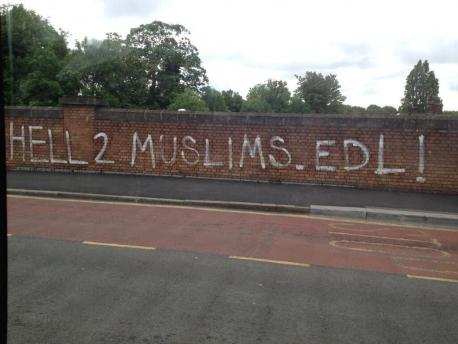 HELL 2 MUSLIMS. EDL!